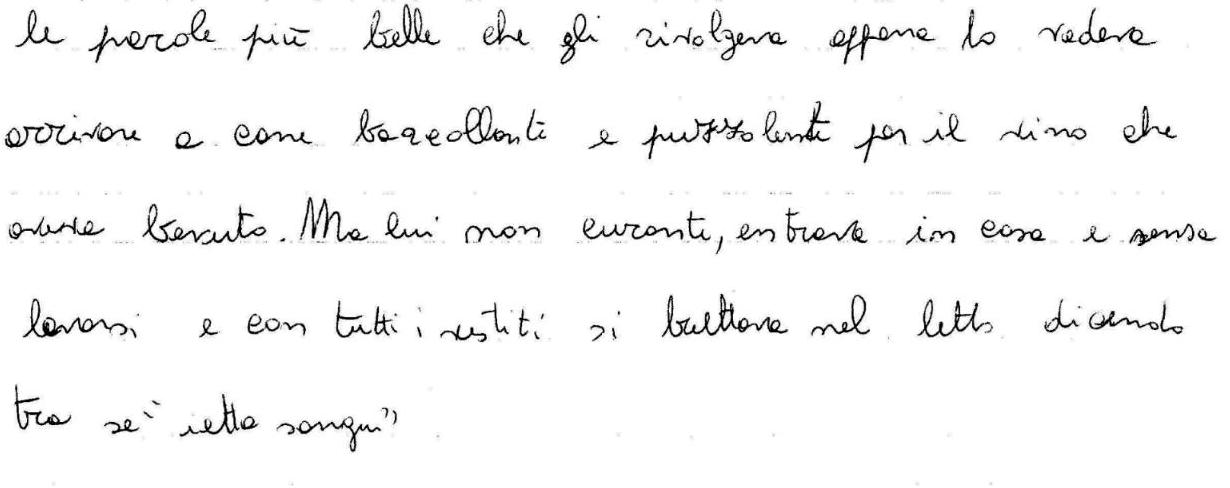 le parole più belle che gli rivolgeva appena lo vedeva
arrivare a casa barcollante e puzzolente per il vino che
aveva bevuto. Ma lui non curante, entrava in casa e senza
lavarsi e con tutti i vestiti si buttava nel letto dicendo
tra sé "ietta sangu"